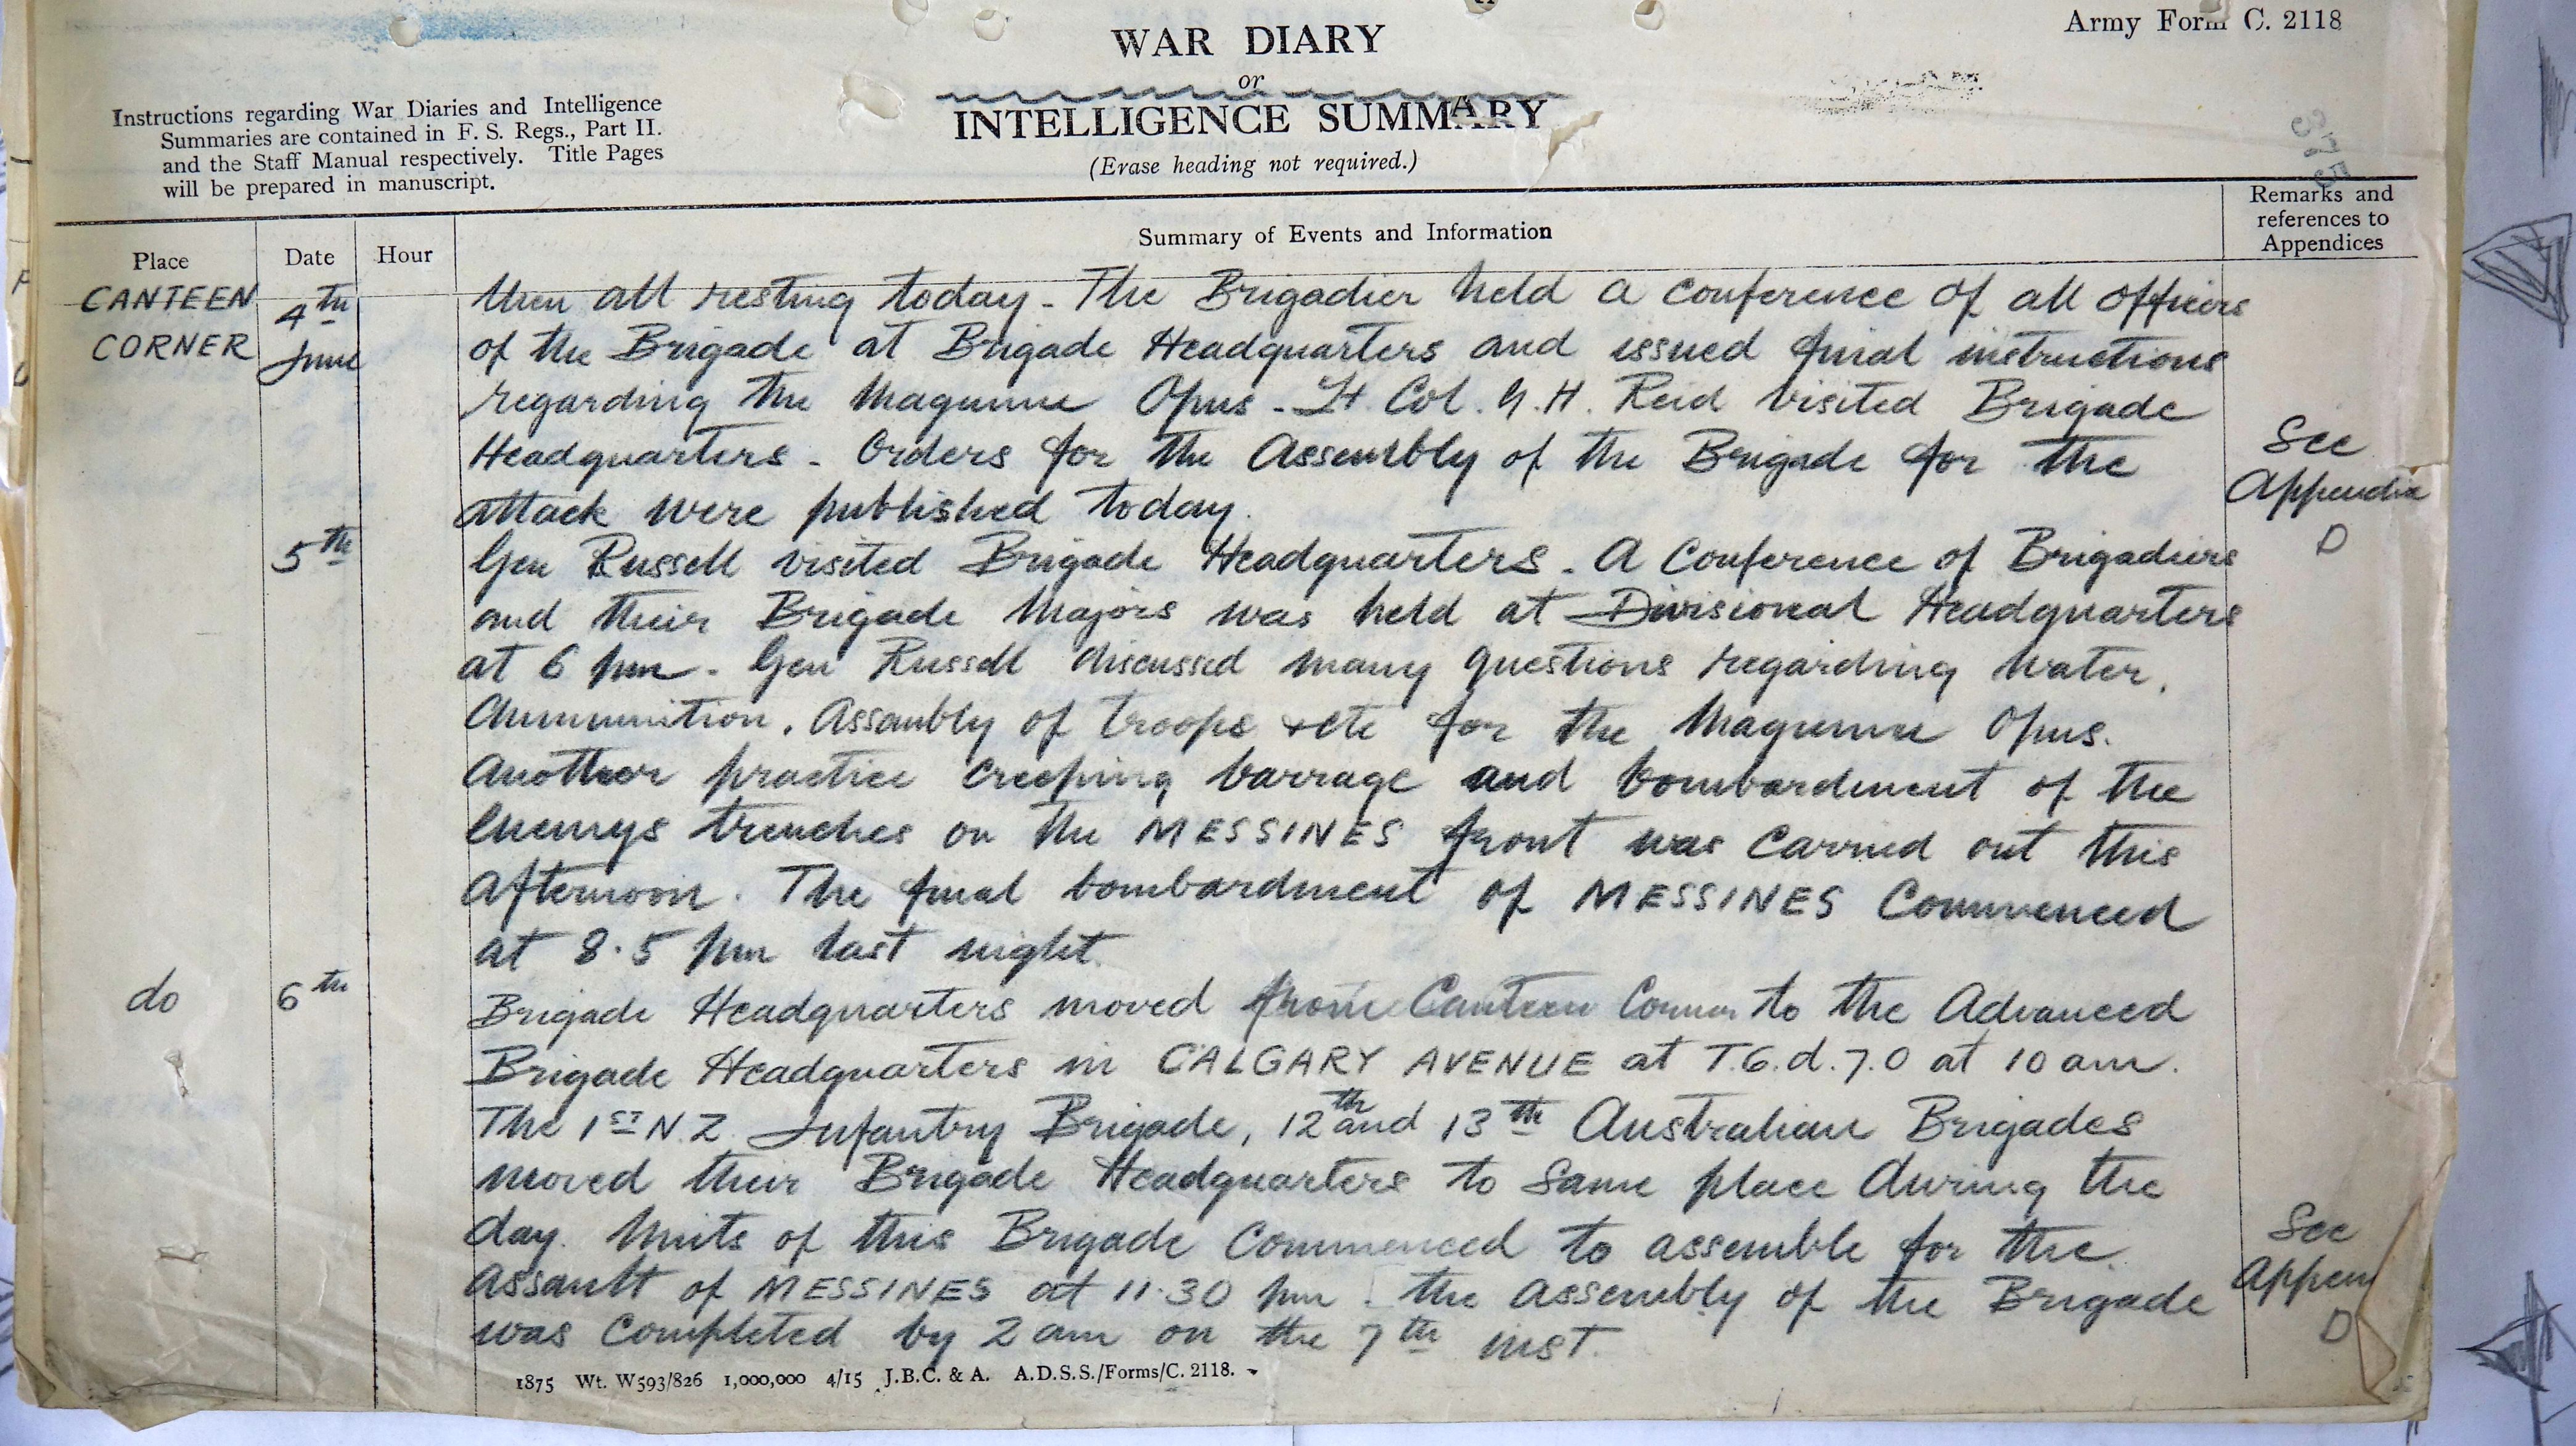 Army Form C. 2118
WAR DIARY
or
INTELLIGENCE SUMMARY
(Erase heading not required.)
Instructions regarding War Diaries and Intelligence
Summaries are contained in F. S. Regs., Part II.
and the Staff Manual respectively. Title Pages
will be prepared in manuscript.
Place
Date
Hour
Summary of Events and Information
Remarks and
references to
Appendices
CANTEEN
CORNER
4th
June
Men all resting today - The Brigadier held a conference of all officers
of the Brigade at Brigade Headquarters and issued final instructions
regarding the Magnum Opus - Lt. Col. G. H. Reid visited Brigade
Headquarters - Orders for the Assembly of the Brigade for the
attack were published today.
See
Appendix
D
5th
Gen Russell visited Brigade Headquarters - A Conference of Brigadiers
and their Brigade Majors was held at Divisional Headquarters
at 6 pm - Gen Russell discussed many questions regarding water,
Ammunition, Assembly of troops & etc for the Magnum Opus.
Another practice creeping barrage and bombardment of the
Enemys trenches on the MESSINES front was carried out this
afternoon. The final bombardment of MESSINES Commenced
at 8.5 pm last night.
do
6th
Brigade Headquarters moved from Canteen Corner to the Advanced
Brigade Headquarters in CALGARY AVENUE at T.6.d.7.0 at 10 am.
The 1ST N.Z. Infantry Brigade, 12th and 13th Australian Brigades
moved their Brigade Headquarters to same place during the
day. Units of this Brigade Commenced to assemble for the
Assault of MESSINES at 11.30 pm. the Assembly of the Brigade
was completed by 2 am on the 7th inst.
See
Appen
D
1875 Wt. W593/826 1,000,000 4/15 J.B.C. & A. A.D.S.S./Forms/C. 2118.